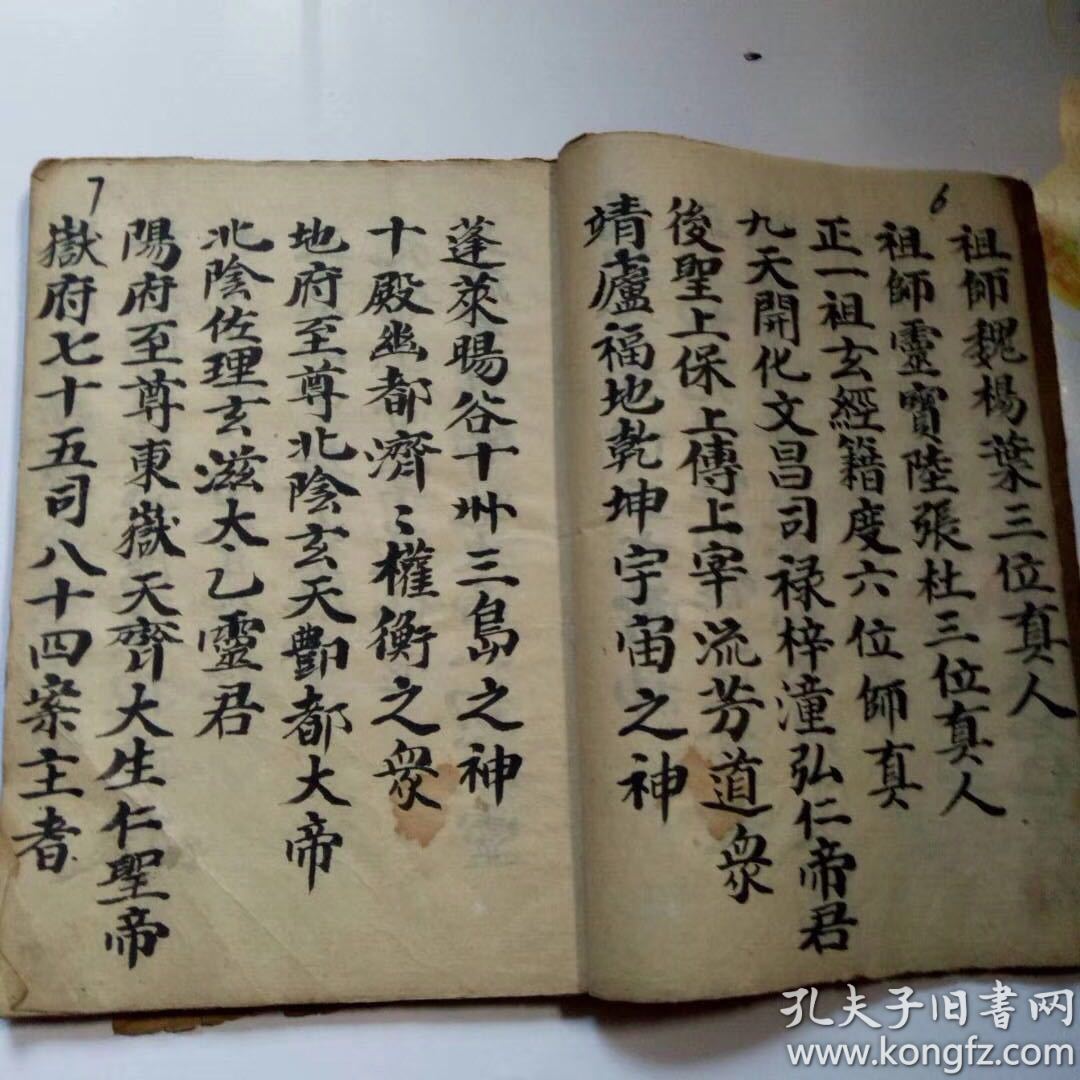 6
祖師魏楊葉三位真人
祖師靈寶陸張杜三位真人
正一祖玄經籍度六位師真
九天開化文昌司禄梓潼弘仁帝君
後聖上保上傅上宰流芳道衆
靖廬福地乾坤宇宙之神
7
蓬萊暘谷十州三島之神
十殿幽都濟〻權衡之衆
地府至尊北陰玄天酆都大帝
北陰佐理玄滋太乙靈君
陽府至尊東嶽天齊大生仁聖帝
嶽府七十五司八十四案主者
孔夫子旧书网
www.kongfz.com